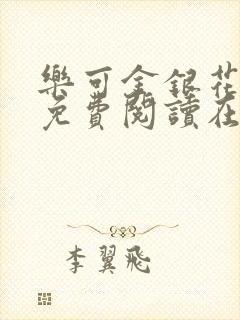 樂可金銀花
免費閱讀在
李翼飛